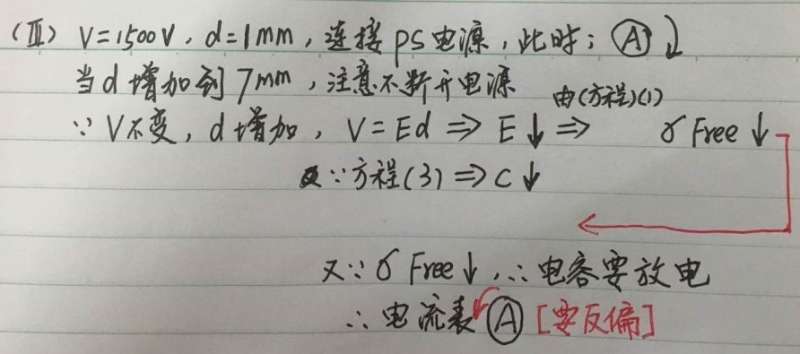 (Ⅲ) V=1500V, d=1mm, 连接PS电源, 此时; Ⓐ↓
当d增加到7mm, 注意不断开电源
由(方程)(1)
∵V不变, d增加, V=Ed ⇒ E↓ ⇒ σ Free ↓
又∵方程(3) ⇒ C↓
又∵σ Free↓, ∴电容要放电
∴电流表Ⓐ [要反偏]